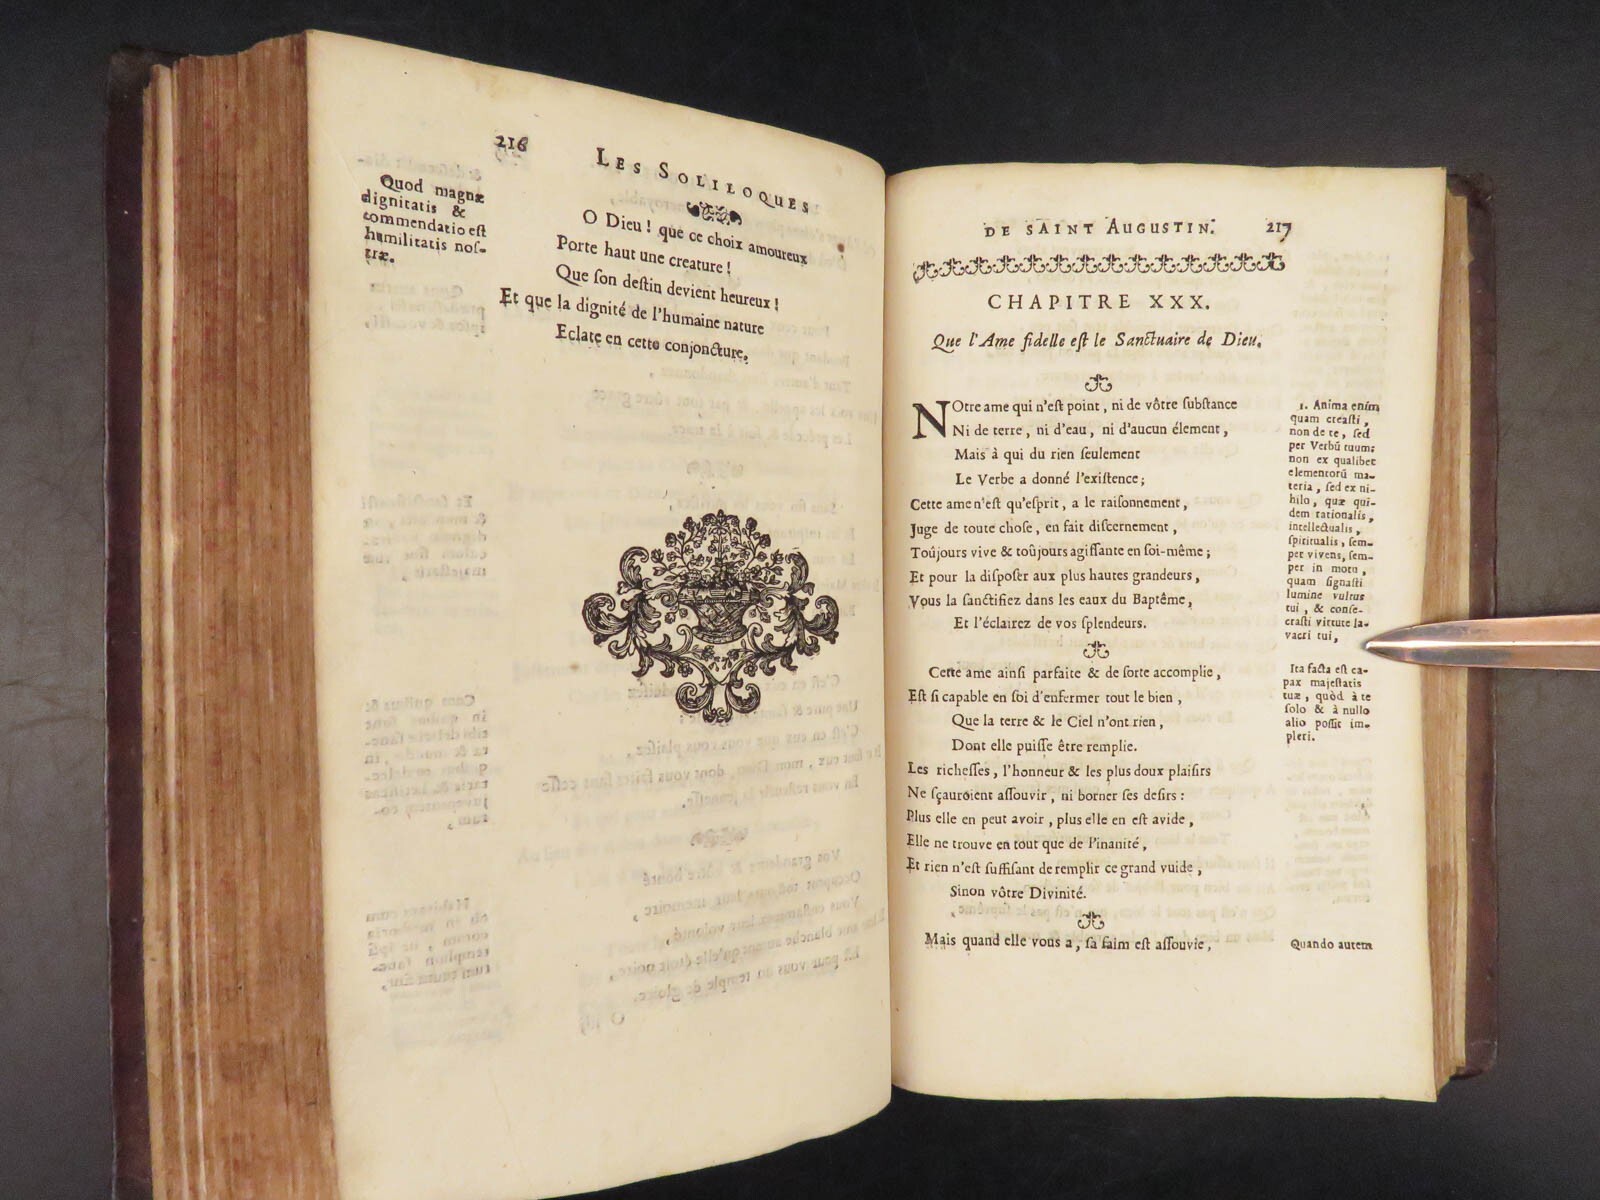 216
LES SOLILOQUES
Quod magnæ
dignitatis &
commendatio eſt
humilitatis noſ-
træ.
O Dieu ! que ce choix amoureux
Porte haut une creature !
Que ſon deſtin devient heureux !
Et que la dignité de l'humaine nature
Eclate en cette conjoncture.
DE SAINT AUGUSTIN.
217
CHAPITRE XXX.
Que l'Ame fidelle eſt le Sanctuaire de Dieu.
NOtre ame qui n'eſt point, ni de vôtre ſubſtance
Ni de terre, ni d'eau, ni d'aucun élement,
Mais à qui du rien ſeulement
Le Verbe a donné l'exiſtence;
Cette ame n'eſt qu'eſprit, a le raiſonnement,
Juge de toute choſe, en fait diſcernement,
Toûjours vive & toûjours agiſſante en ſoi-même;
Et pour la diſpoſer aux plus hautes grandeurs,
Vous la ſanctifiez dans les eaux du Baptême,
Et l'éclairez de vos ſplendeurs.
Cette ame ainſi parfaite & de ſorte accomplie,
Eſt ſi capable en ſoi d'enfermer tout le bien,
Que la terre & le Ciel n'ont rien,
Dont elle puiſſe être remplie.
Les richeſſes, l'honneur & les plus doux plaiſirs
Ne ſçauroient aſſouvir, ni borner ſes deſirs :
Plus elle en peut avoir, plus elle en eſt avide,
Elle ne trouve en tout que de l'inanité,
Et rien n'eſt ſuffiſant de remplir ce grand vuide,
Sinon vôtre Divinité.
Mais quand elle vous a, ſa faim eſt aſſouvie,
1. Anima enim
quam creaſti,
non de te, ſed
per Verbū tuum;
non ex qualibet
elementorū ma-
teria, ſed ex ni-
hilo, quæ qui-
dem rationalis,
intellectualis,
ſpiritualis, ſem-
per vivens, ſem-
per in motu,
quam ſignaſti
lumine vultus
tui, & conſe-
craſti virtute la-
vacri tui,
Ita facta eſt ca-
pax majeſtatis
tuæ, quòd à te
ſolo & à nullo
alio poſſit im-
pleri.
Quando autem